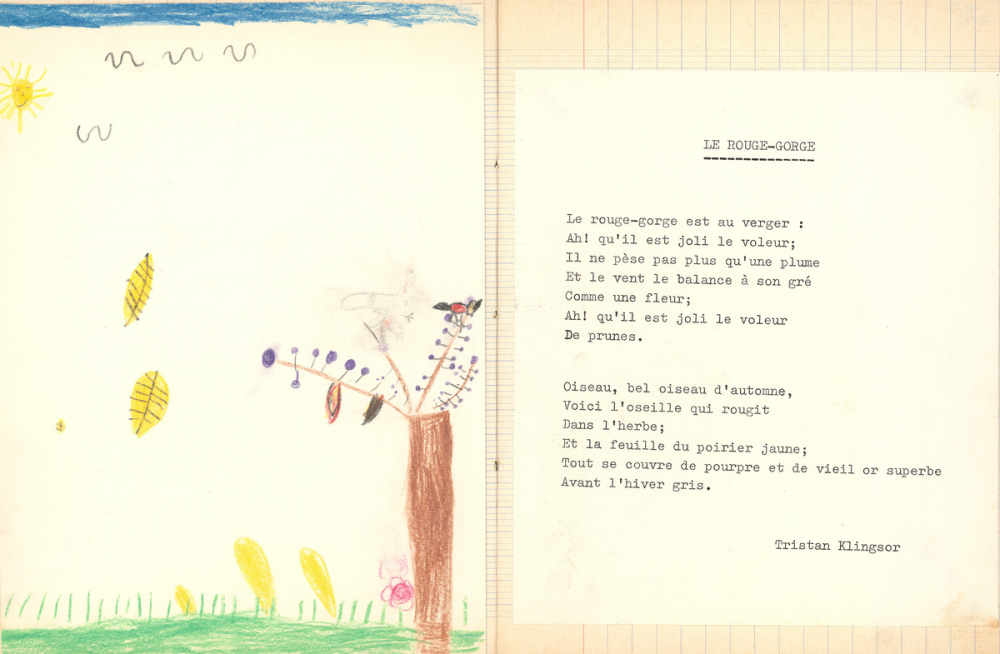 LE ROUGE-GORGE
Le rouge-gorge est au verger :
Ah! qu'il est joli le voleur;
Il ne pèse pas plus qu'une plume
Et le vent le balance à son gré
Comme une fleur;
Ah! qu'il est joli le voleur
De prunes.
Oiseau, bel oiseau d'automne,
Voici l'oseille qui rougit
Dans l'herbe;
Et la feuille du poirier jaune;
Tout se couvre de pourpre et de vieil or superbe
Avant l'hiver gris.
Tristan Klingsor